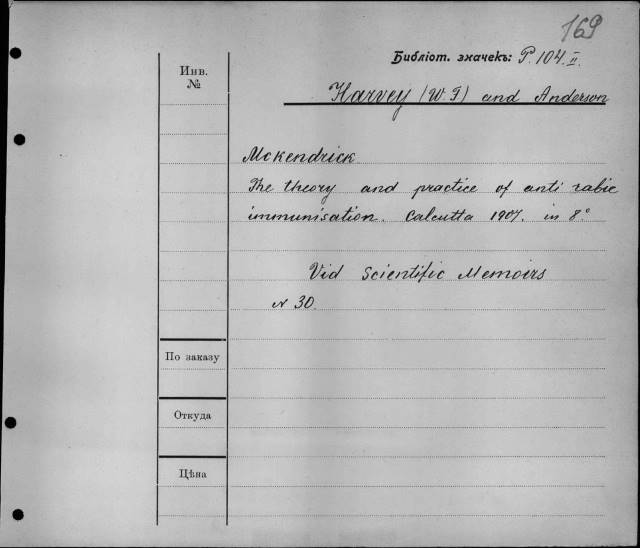 169
Библіот. значекъ: P. 104. II.
Инв.
№
Harvey (W. F) and Anderson
McKendrick
The theory and practice of anti rabic
immunisation. Calcutta 1907. in 8°
Vid Scientific Memoirs
N 30.
По заказу
Откуда
Цѣна